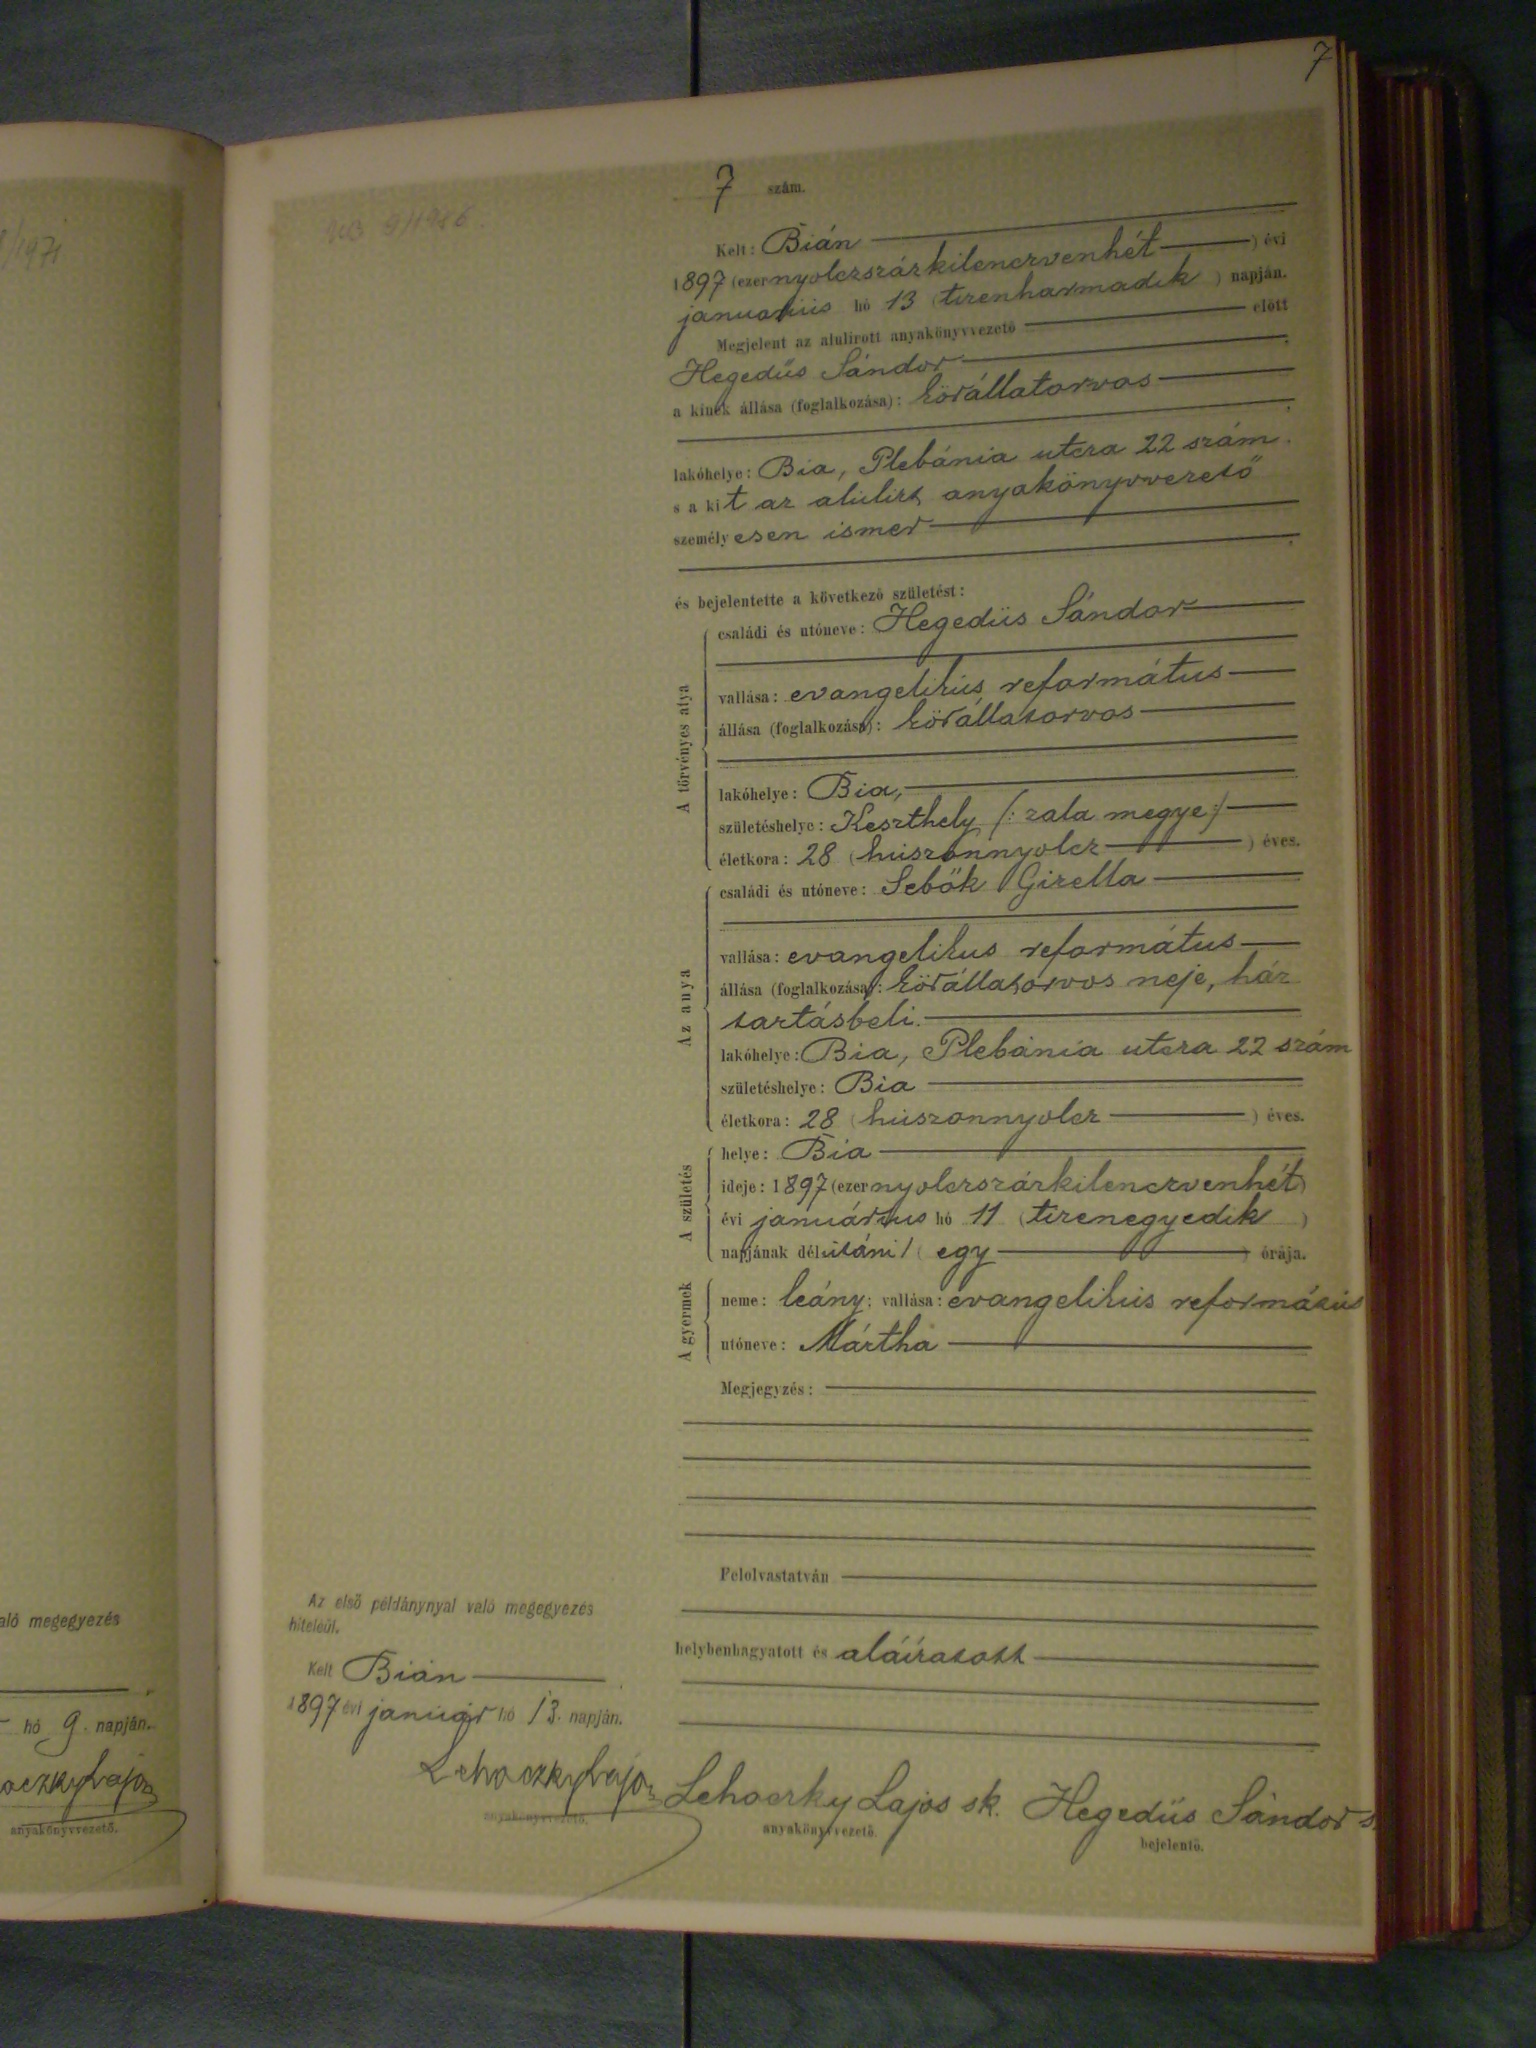 7
7 szám.
Kelt: Bián
1897 (ezernyolczszázkilenczvenhét) évi
januárius hó 13 (tizenharmadik) napján.
Megjelent az alulirott anyakönyvvezető előtt
Hegedüs Sándor
a kinek állása (foglalkozása): körállatorvos
lakóhelye: Bia, Plebánia utcza 22 szám.
s a kit az alulirt anyakönyvvezető
személyesen ismer
és bejelentette a következő születést:
A törvényes atya
családi és utóneve: Hegedüs Sándor
vallása: evangelikus református
állása (foglalkozása): körállatorvos
lakóhelye: Bia,
születéshelye: Keszthely (: zala megye :)
életkora: 28 (huszonnyolcz) éves.
Az anya
családi és utóneve: Sebők Gizella
vallása: evangelikus református
állása (foglalkozása): körállatorvos neje, ház
tartásbeli.
lakóhelye: Bia, Plebánia utcza 22 szám
születéshelye: Bia
életkora: 28 (huszonnyolcz) éves.
A születés
helye: Bia
ideje: 1897 (ezernyolczszázkilenczvenhét)
évi januárius hó 11 (tizenegyedik)
napjának délutáni 1 (egy) órája.
A gyermek
neme: leány; vallása: evangelikus református
utóneve: Mártha
Megjegyzés:
Felolvastatván
helybenhagyatott és aláíratott
Lehoczky Lajos sk. Hegedüs Sándor s.
anyakönyvvezető. bejelentő.
Az első példánynyal való megegyezés
hiteléül.
Kelt Bián
1897 évi január hó 13. napján.
Lehoczky Lajos
anyakönyvvezető.
/1971
aló megegyezés
hó 9. napján.
oczky Lajos
anyakönyvvezető.